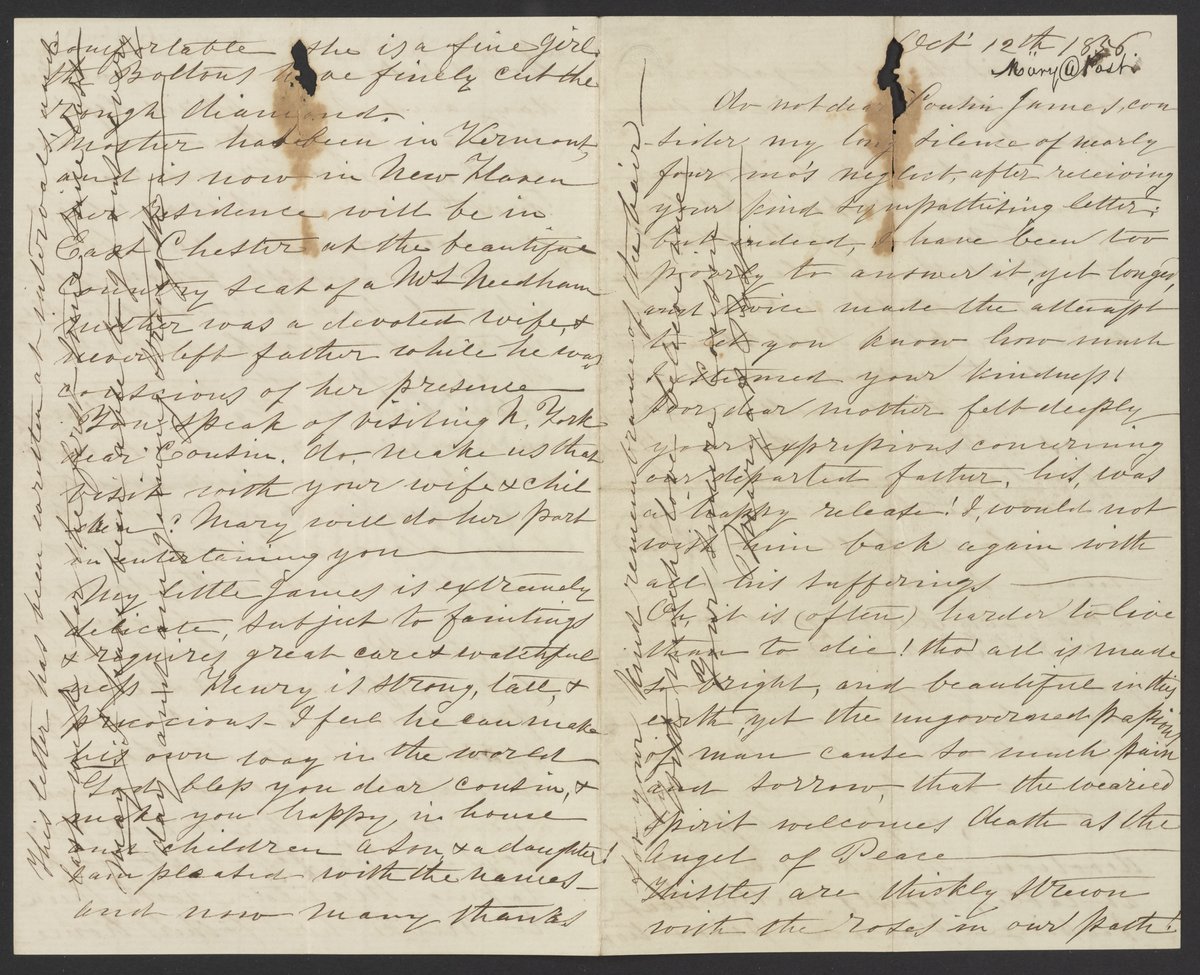 Oct' 12th 1856
Mary @ Post.
do not dear Cousin James, con
-sider my long silence of nearly
four mo's neglect, after receiving
your kind sympathising letter;
but indeed, I have been too
poorly to answer it, yet longed,
and twice made the attempt
to let you know how much
I esteemed your kindness!
Poor dear mother felt deeply
your expressions concerning
our departed father, his, was
a happy release! I, would not
wish him back again with
all his sufferings
Oh, it is (often) harder to live
than to die! tho' all is made
so bright, and beautiful in this
earth, yet the ungoverned passions
of man cause so much pain
and sorrow, that the wearied
spirit welcomes death as the
Angel of Peace
Thistles are thickly strewn
with the roses in our path!
comfortable she is a fine girl
the Boltons have finely cut the
rough diamond.
Mother has been in Vermont,
and is now in New Haven
her residence will be in
East Chester at the beautiful
country seat of a Mrs Needham
mother was a devoted wife, &
never left father while he was
conscious of her presence
You speak of visiting N. York
dear Cousin. do, make us that
visit with your wife & chil
dren? Mary will do her part
in entertaining you
My little James is extremely
delicate, subject to faintings
& requires great care & watchful
ness - Henry is strong, tall, &
precocious - I feel he can make
his own way in the world
God bless you dear cousin, &
make you happy, in house
and children a son & a daughter!
I am pleased with the names -
and now many thanks
for your kind remembrance of the hair
with much love, believe me
your sincere Cousin
Mary @ Post
This letter has been written at intervals and